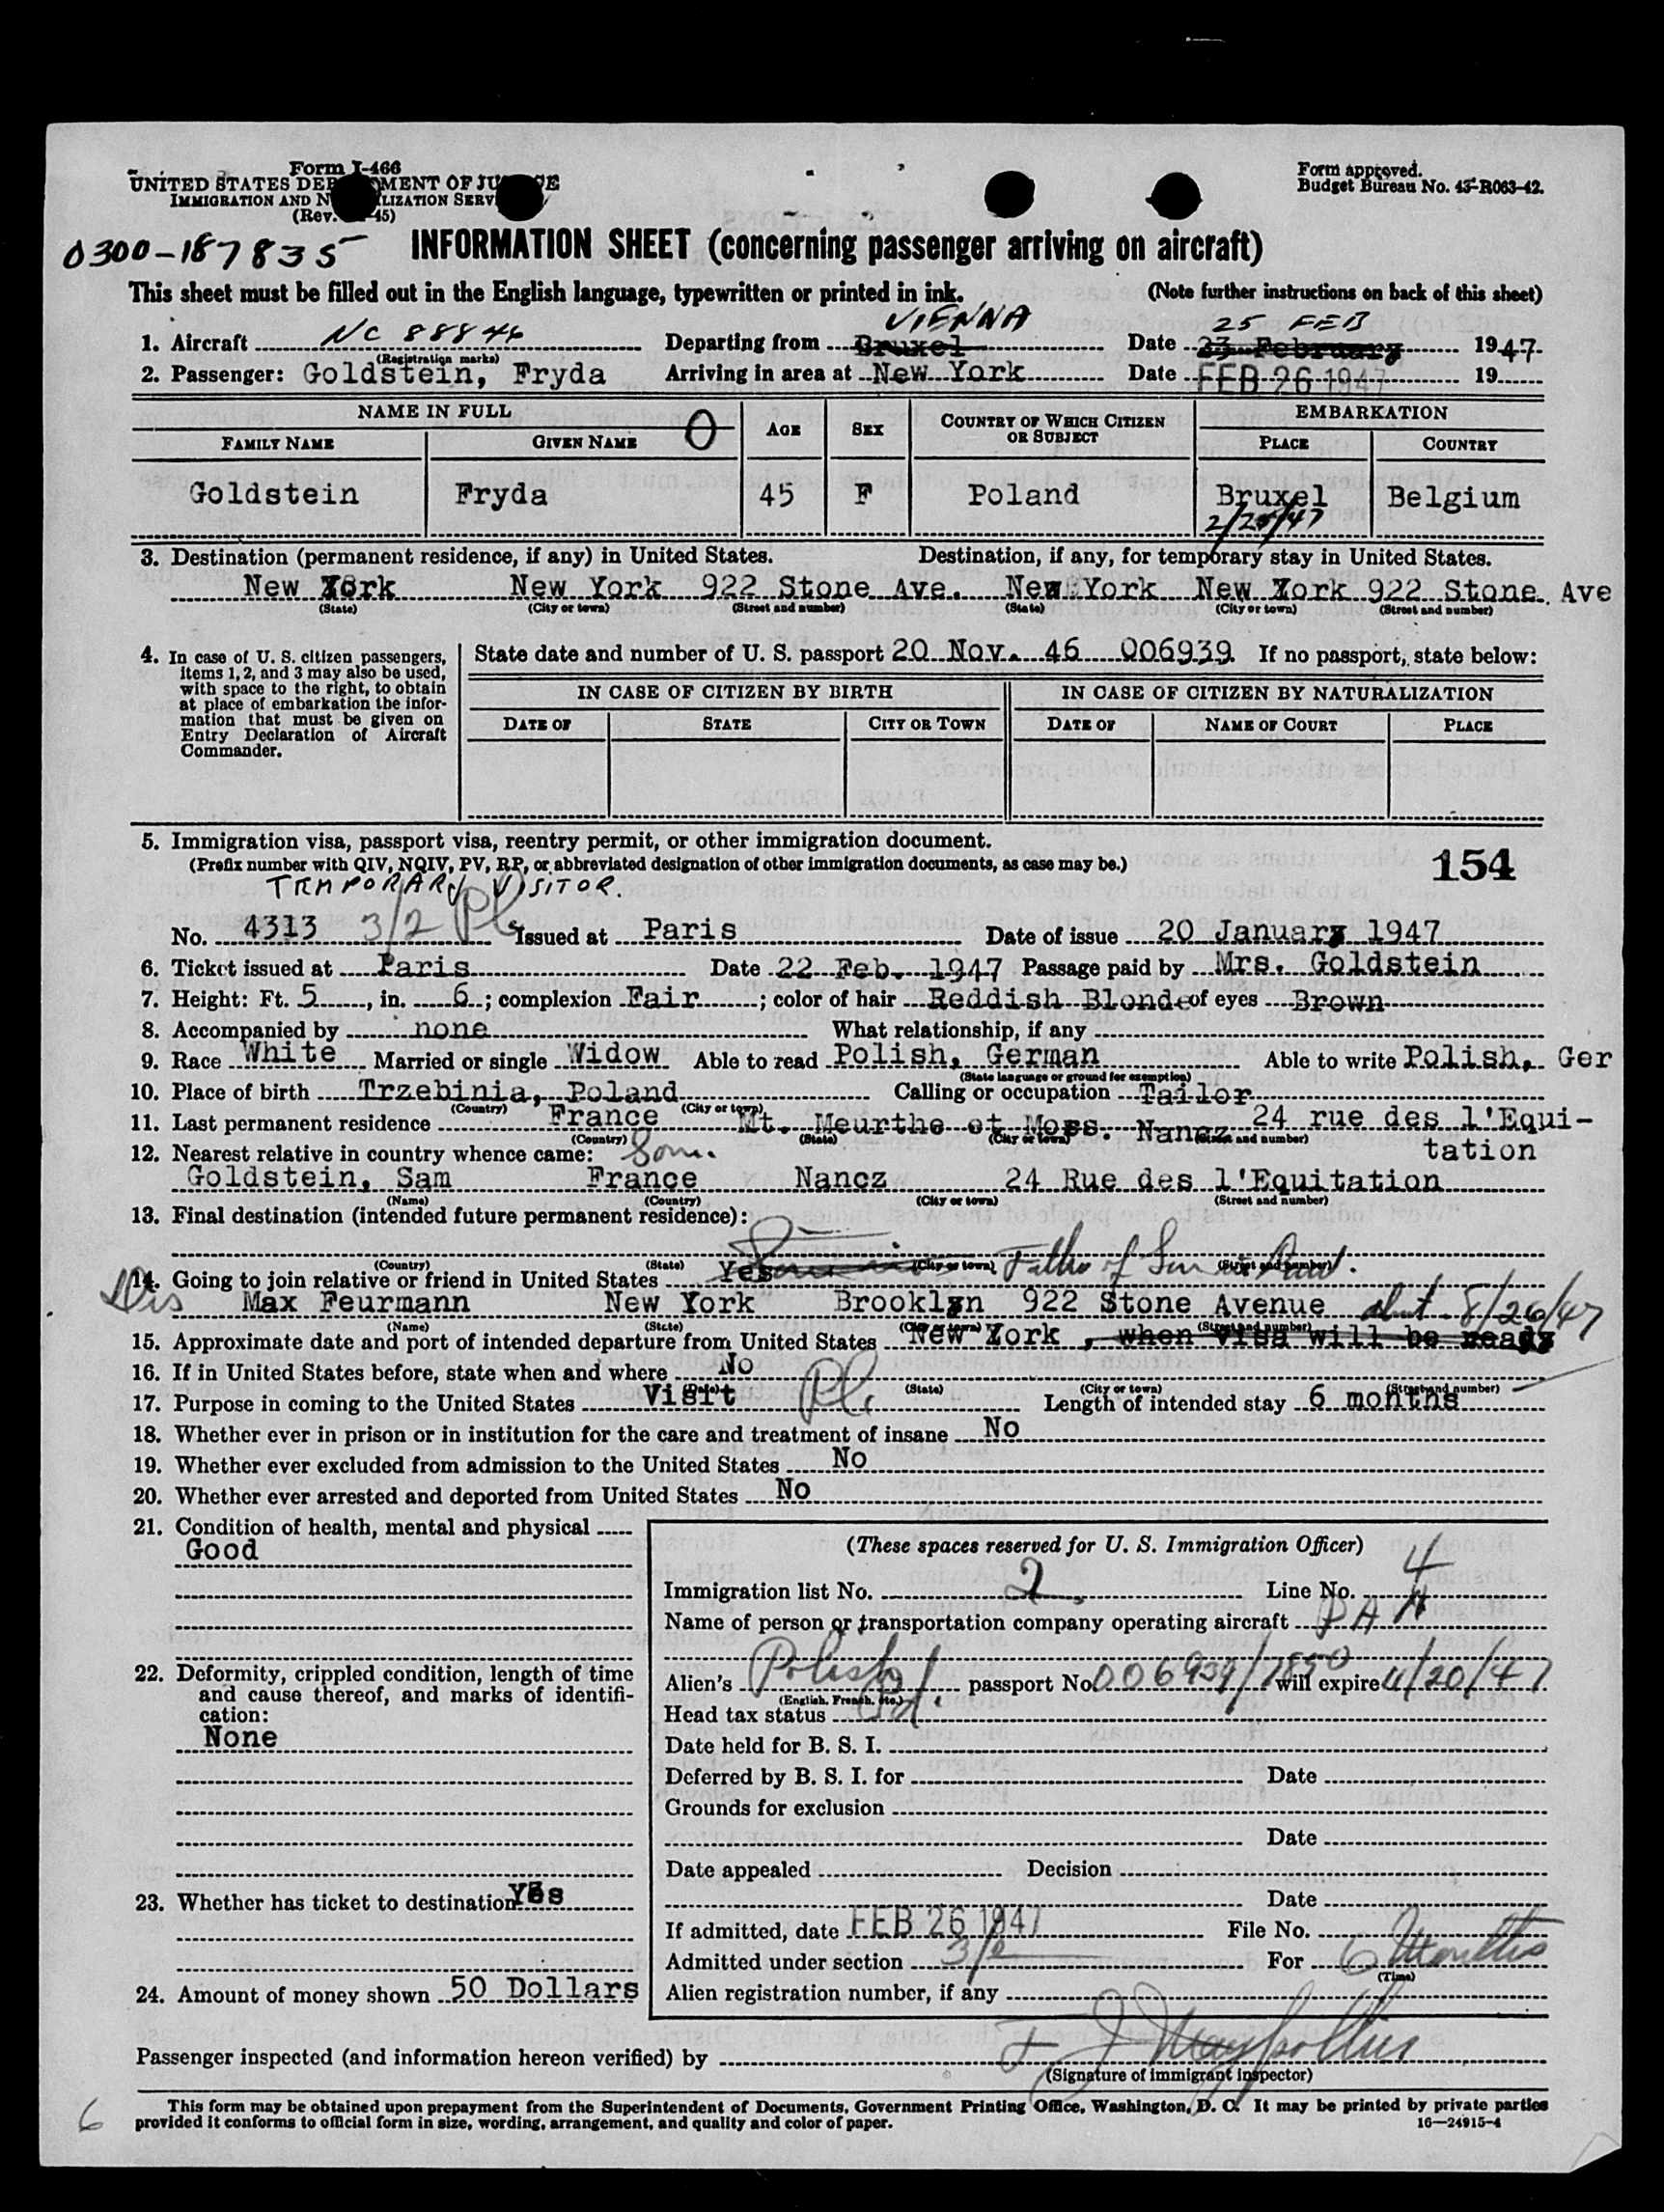 Form I-466
UNITED STATES DEPARTMENT OF JUSTICE
IMMIGRATION AND NATURALIZATION SERVICE
(Rev. -45)
Form approved.
Budget Bureau No. 43-R063-42.
0300-187835
INFORMATION SHEET (concerning passenger arriving on aircraft)
This sheet must be filled out in the English language, typewritten or printed in ink. (Note further instructions on back of this sheet)
VIENNA 25 FEB
1. Aircraft NC 88846 Departing from Bruxel Date 23 February 1947
(Registration marks)
2. Passenger: Goldstein, Fryda Arriving in area at New York Date FEB 26 1947 19
NAME IN FULL O AGE SEX COUNTRY OF WHICH CITIZEN OR SUBJECT EMBARKATION
FAMILY NAME GIVEN NAME PLACE COUNTRY
Goldstein Fryda 45 F Poland Bruxel Belgium
2/25/47
3. Destination (permanent residence, if any) in United States. Destination, if any, for temporary stay in United States.
New York New York 922 Stone Ave. New York New Zork 922 Stone Ave
(State) (City or town) (Street and number) (State) (City or town) (Street and number)
4. In case of U. S. citizen passengers, items 1, 2, and 3 may also be used, with space to the right, to obtain at place of embarkation the information that must be given on Entry Declaration of Aircraft Commander.
State date and number of U. S. passport 20 Nov. 46 006939 If no passport, state below:
IN CASE OF CITIZEN BY BIRTH IN CASE OF CITIZEN BY NATURALIZATION
DATE OF STATE CITY OR TOWN DATE OF NAME OF COURT PLACE
5. Immigration visa, passport visa, reentry permit, or other immigration document.
(Prefix number with QIV, NQIV, PV, RP, or abbreviated designation of other immigration documents, as case may be.)
154
TEMPORARY VISITOR.
No. 4313 3/2 Issued at Paris Date of issue 20 January 1947
6. Ticket issued at Paris Date 22 Feb. 1947 Passage paid by Mrs. Goldstein
7. Height: Ft. 5, in. 6; complexion Fair; color of hair Reddish Blonde of eyes Brown
8. Accompanied by none What relationship, if any
9. Race White Married or single Widow Able to read Polish, German Able to write Polish, Ger
(State language or ground for exemption)
10. Place of birth Trzebinia, Poland Calling or occupation Tailor
(Country) (City or town)
11. Last permanent residence France Mt. Meurthe et Moss. Nancz 24 rue des l'Equi-
(Country) (State) (City or town) (Street and number)
tation
12. Nearest relative in country whence came: Son.
Goldstein, Sam France Nancz 24 Rue des l'Equitation
(Name) (Country) (City or town) (Street and number)
13. Final destination (intended future permanent residence):
(Country) (State) (City or town) (Street and number)
14. Going to join relative or friend in United States Yes
Max Feurmann New York Brooklzn 922 Stone Avenue
(Name) (State) (City or town) (Street and number)
abut 8/26/47
15. Approximate date and port of intended departure from United States New York, when visa will be ready
16. If in United States before, state when and where No
(Date) (State) (City or town) (Street and number)
17. Purpose in coming to the United States Visit Length of intended stay 6 months
18. Whether ever in prison or in institution for the care and treatment of insane No
19. Whether ever excluded from admission to the United States No
20. Whether ever arrested and deported from United States No
21. Condition of health, mental and physical
Good
22. Deformity, crippled condition, length of time and cause thereof, and marks of identification:
None
23. Whether has ticket to destination Yes
24. Amount of money shown 50 Dollars
(These spaces reserved for U. S. Immigration Officer)
Immigration list No. 2 Line No. 4
Name of person or transportation company operating aircraft PAA
Alien's Polish passport No. 006939/7850 will expire 11/20/47
(English, French, etc.)
Head tax status
Date held for B. S. I.
Deferred by B. S. I. for Date
Grounds for exclusion
Date
Date appealed Decision
Date
If admitted, date FEB 26 1947 File No.
Admitted under section 3/2 For 6 Months
(Time)
Alien registration number, if any
Passenger inspected (and information hereon verified) by
(Signature of immigrant inspector)
6
This form may be obtained upon prepayment from the Superintendent of Documents, Government Printing Office, Washington, D. C. It may be printed by private parties
provided it conforms to official form in size, wording, arrangement, and quality and color of paper. 16—24915-4